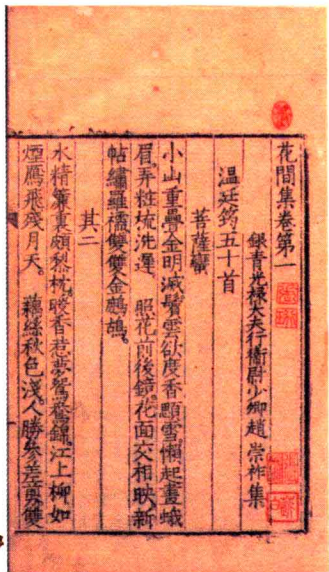 花間集卷第一
銀青光祿大夫行衛尉少卿趙 崇祚 集
温廷筠五十首
菩薩蠻
小山重疊金明滅鬢雲欲度香顋雪懶起畫蛾
眉弄粧梳洗遲 照花前後鏡。花面交相映新
帖繡羅襦雙雙金鷓鴣。
其二
水精簾裏頗黎枕。暖香惹夢鴛鴦錦。江上柳如
煙鴈飛殘月天。 藕絲秋色淺。人勝參差剪雙